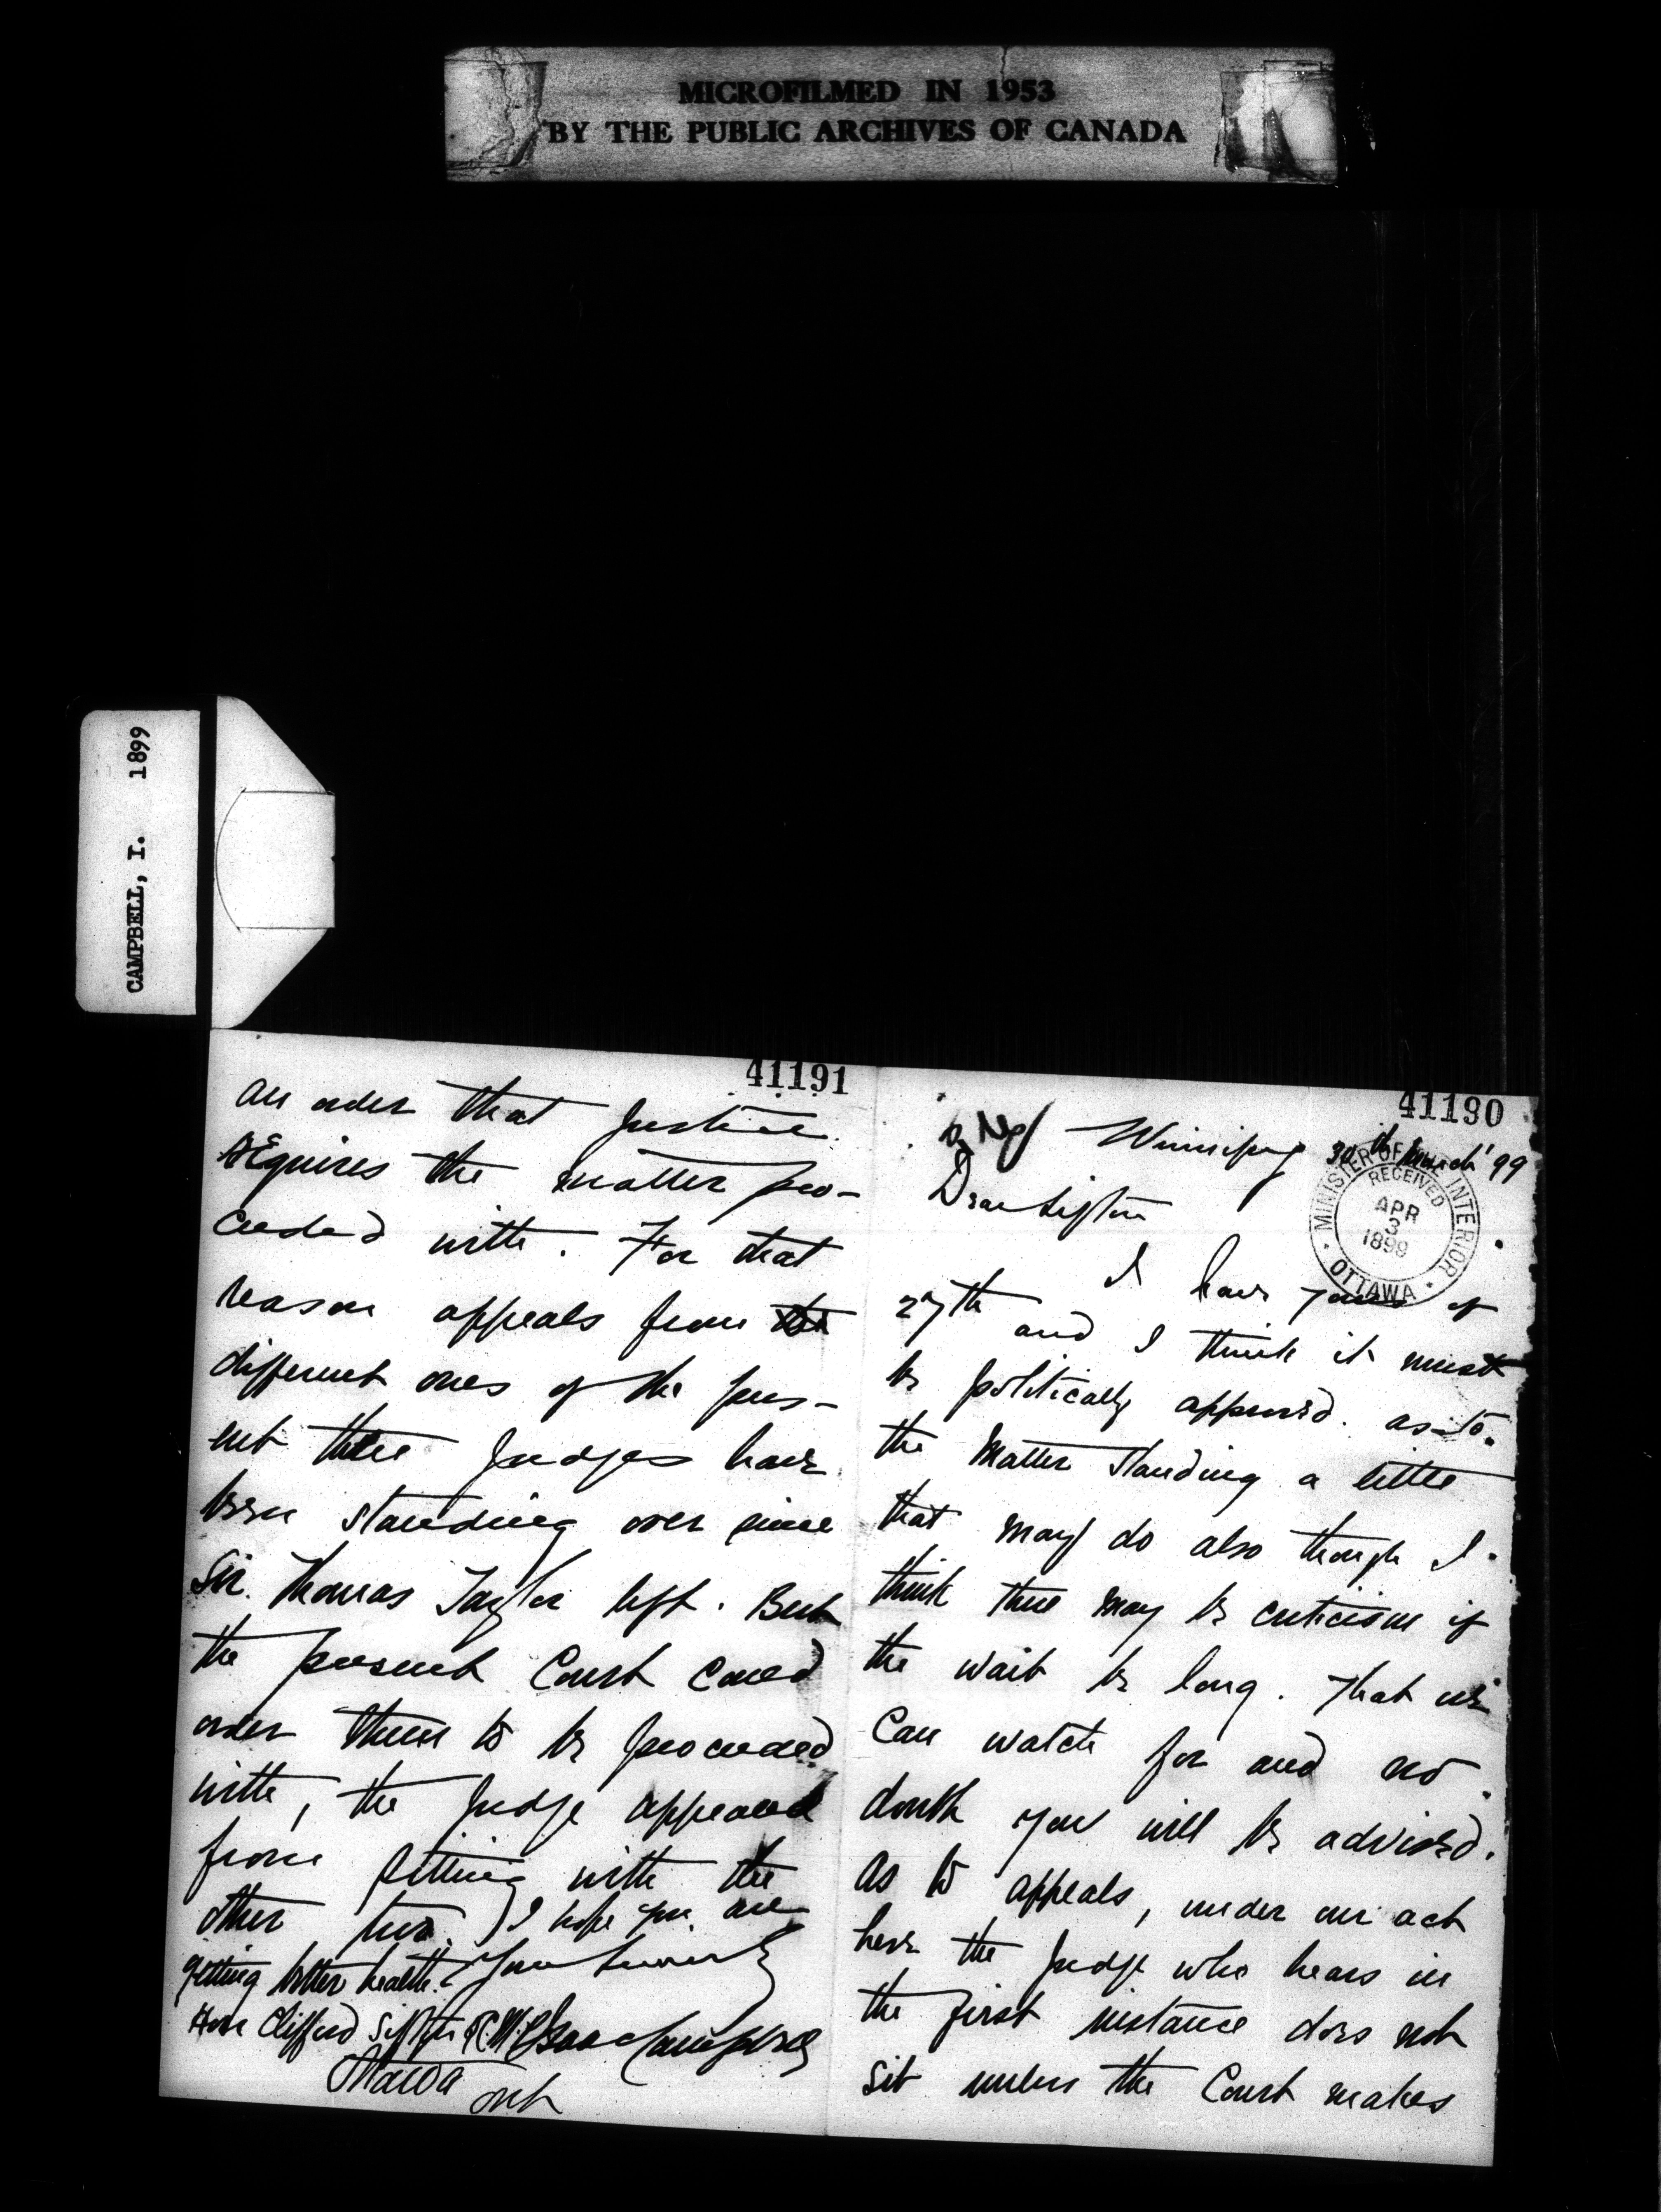 MICROFILMED IN 1953
BY THE PUBLIC ARCHIVES OF CANADA
CAMPBELL, I. 1899
41190
Winnipeg 30th March '99
MINISTER OF THE INTERIOR
RECEIVED
APR
3
1899
OTTAWA
Dear Sifton
I have yours of
27th and I think it must
be politically approved. as to
the matter standing a little
that may do also though I
think there may be criticism if
the wait be long. That we
can watch for and no
doubt you will be advised.
As to appeals, under our act
here the Judge who hears in
the first instance does not
sit unless the Court makes
41191
an order that Justice
requires the matter pro-
ceeded with. For that
reason appeals from the
different ones of the pres-
ent three Judges have
been standing over since
Sir Thomas Taylor left. But
the present Court could
order them to be proceeded
with, the Judge appealed
from sitting with the
other two. I hope you are
getting better health. Yours sincerely
Hon Clifford Sifton Isaac Campbell
Ottawa
Ont